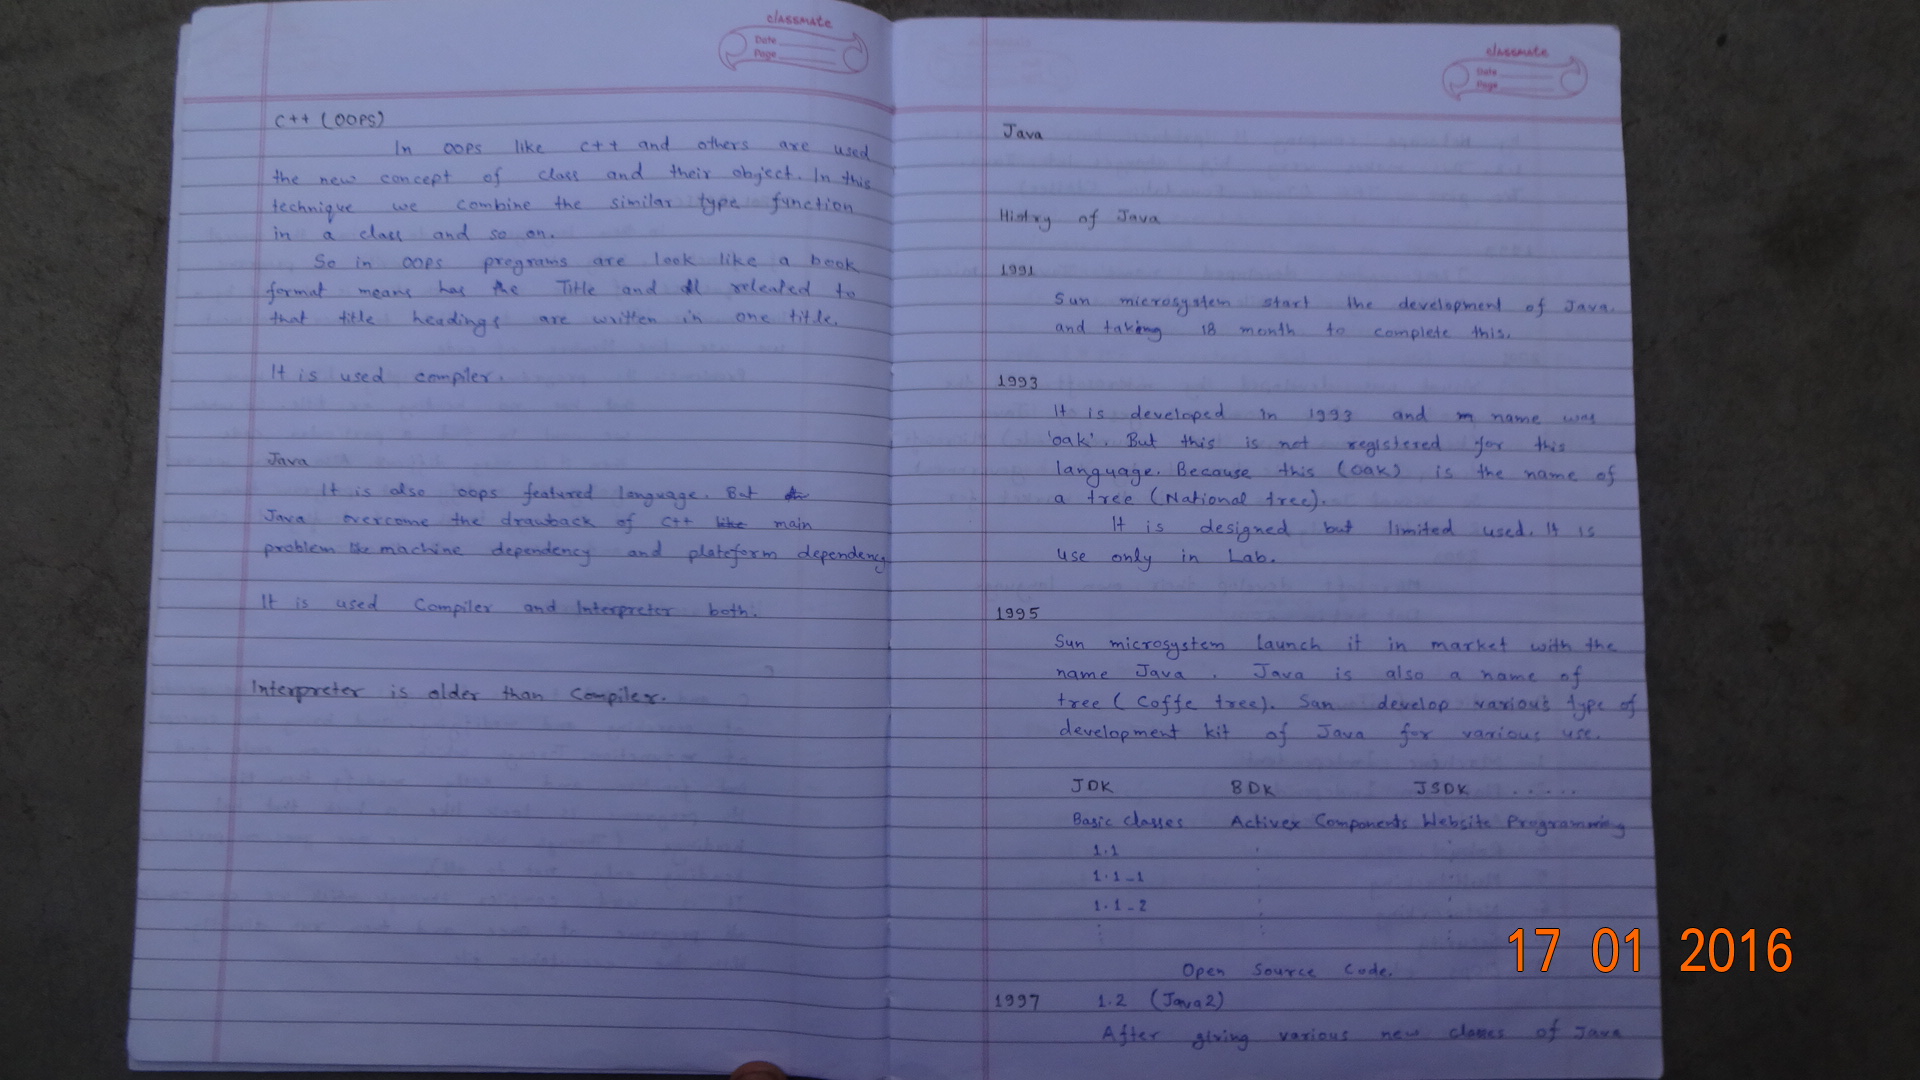 classmate
Date
Page
C++ (OOPS)
In OOPS like C++ and others are used
the new concept of class and their object. In this
technique we combine the similar type function
in a class and so on.
So in OOPS programs are look like a book
format means has the Title and all releated to
that title headings are written in one title.
It is used compiler.
Java
It is also oops featured language. But
Java overcome the drawback of C++ like main
problem like machine dependency and plateform dependency
It is used Compiler and Interpreter both.
Interpreter is older than Compiler.
classmate
Date
Page
Java
Histry of Java
1991
Sun microsystem start the development of Java.
and taking 18 month to complete this.
1993
It is developed in 1993 and name was
'oak'. But this is not registered for this
language. Because this (oak) is the name of
a tree (National tree).
It is designed but limited used. It is
use only in Lab.
1995
Sun microsystem launch it in market with the
name Java. Java is also a name of
tree ( Coffe tree). San develop various type of
development kit of Java for various use.
JDK BDK JSDK .....
Basic classes Activex Components Website Programming
1.1
1.1_1
1.1_2
Open Source Code.
1997 1.2 (Java2)
After giving various new classes of Java
17 01 2016